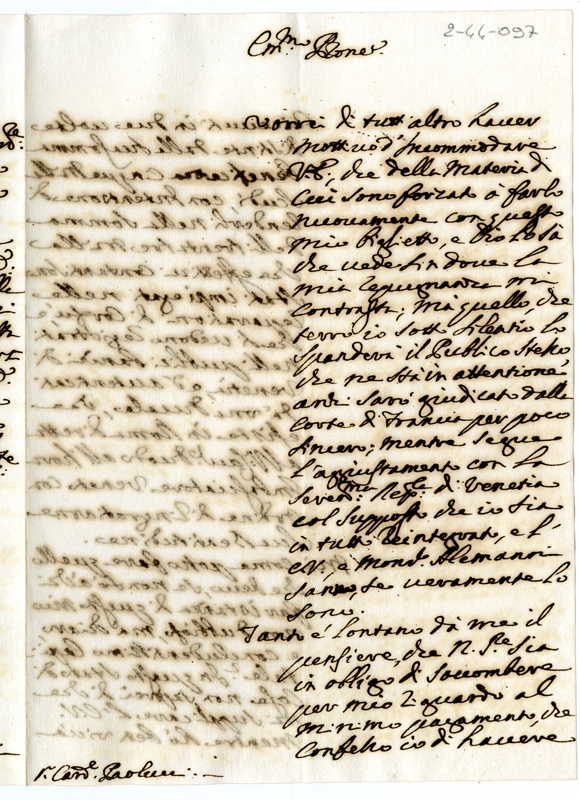 2-44-097
Em.mo Prone.
Vorrei di tutt altro haver
mottivo d'Incommodare
V.E., che della Materia di
cui sono forzato à farlo
nuovamente con questo
mio Biglietto, e Dio lo sà
che vede fin dove la
mia repugnanza mi
contrasti, mà quello, che
terrò io sotto silentio lo
spanderà il Publico stesso
che ne stà in attentione
anzi sarò giudicato dalla
Corte di Francia per poco
sincero; mentre segue
l'aggiustamento con la
Seren.ma Rep.ca di Venetia
col supposto che io sia
in tutto reintegrato, e l'
E.V., e Mons.r Alemanni
sanno, se veramente lo
sono.
Tanto è lontano dà me il
pensiere, che N. S.re sia
in obligo di soccombere
per mio riguardo al
minimo pagamento, che
confesso io di havere
r. Card.e Paolucci.